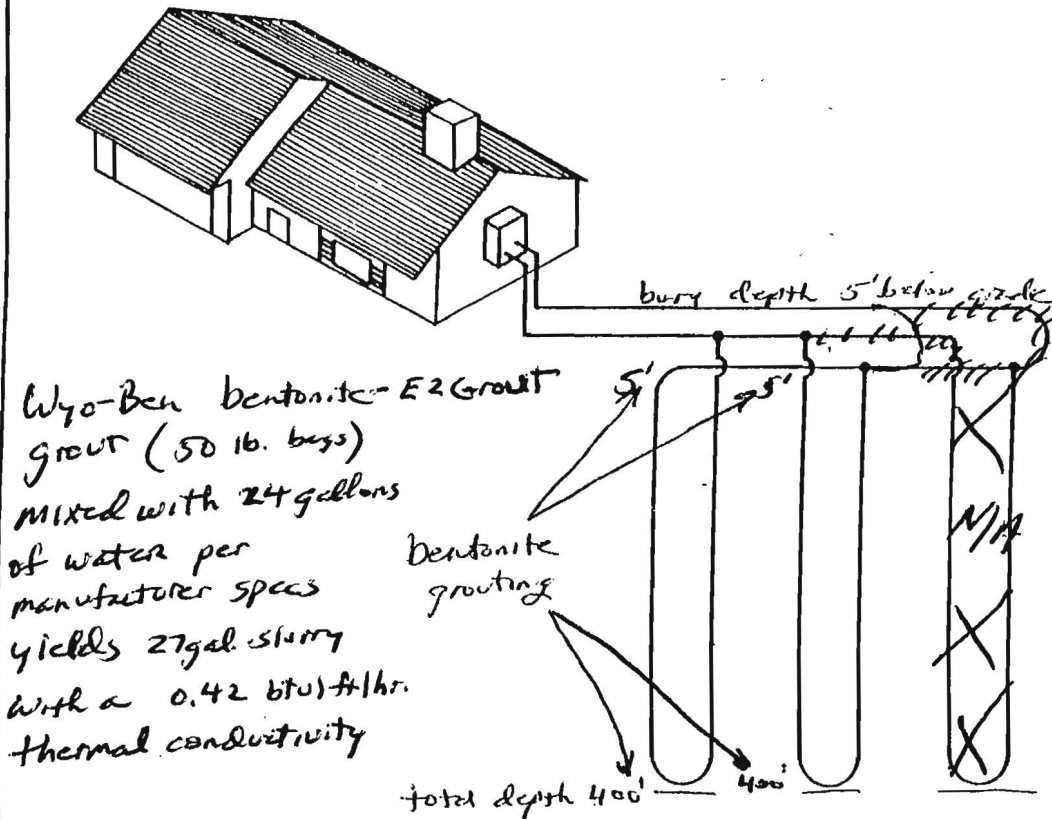 bury depth 5' below grade
5'
5'
Wyo-Ben bentonite - EZ Grout
grout (50 lb. bags)
mixed with 24 gallons
of water per
manufacturer specs
yields 27 gal. slurry
with a 0.42 btu/ft/hr.
thermal conductivity
bentonite
grouting
N/A
total depth 400'
400'